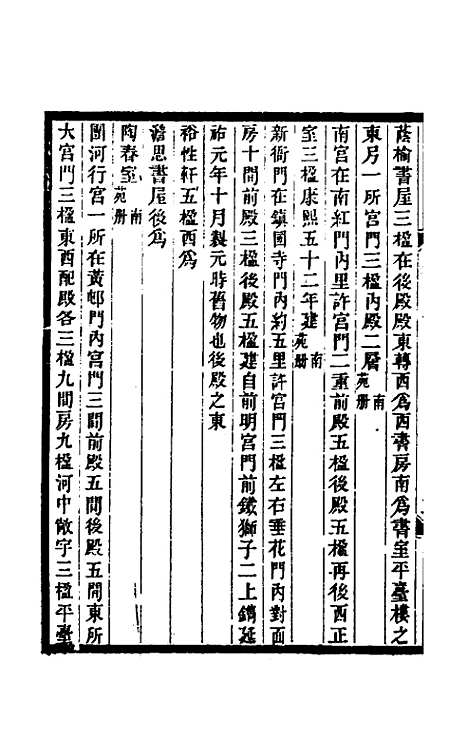 蔭榆書屋三楹在後殿殿東轉西爲西書房南爲書室平臺樓之
東另一所宮門三楹內殿二層南苑册
南宮在南紅門內里許宮門二重前殿五楹後殿五楹再後西正
室三楹康熙五十二年建南苑册
新衙門在鎮國寺門內約五里許宮門三楹左右垂花門內對面
房十間前殿三楹後殿五楹建自前明宮門前鐵獅子二上鐫延
祐元年十月製元時舊物也後殿之東
裕性軒五楹西爲
澹思書屋後爲
陶春室南苑册
團河行宮一所在黃邨門內宮門三間前殿五間後殿五間東所
大宮門三楹東西配殿各三楹九間房九楹河中敞宇三楹平臺